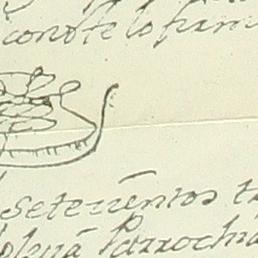 conste lo firm
setezientos tr
Parrochia